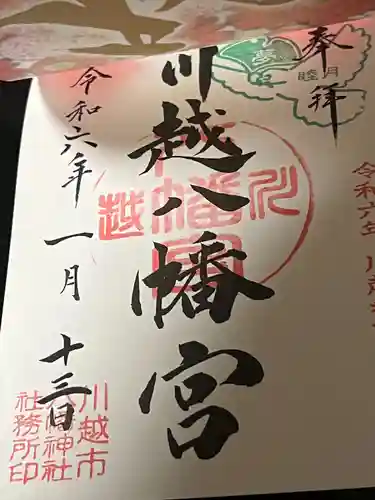 奉拝
夢
睦月
令和六年
川越八幡宮
川越
八幡宮
令和六年 一月 十三日
川越市
八幡神社
社務所印